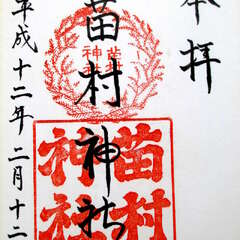 奉拝
苗村神社
苗村
神社
苗村
神社
平成十二年二月十二